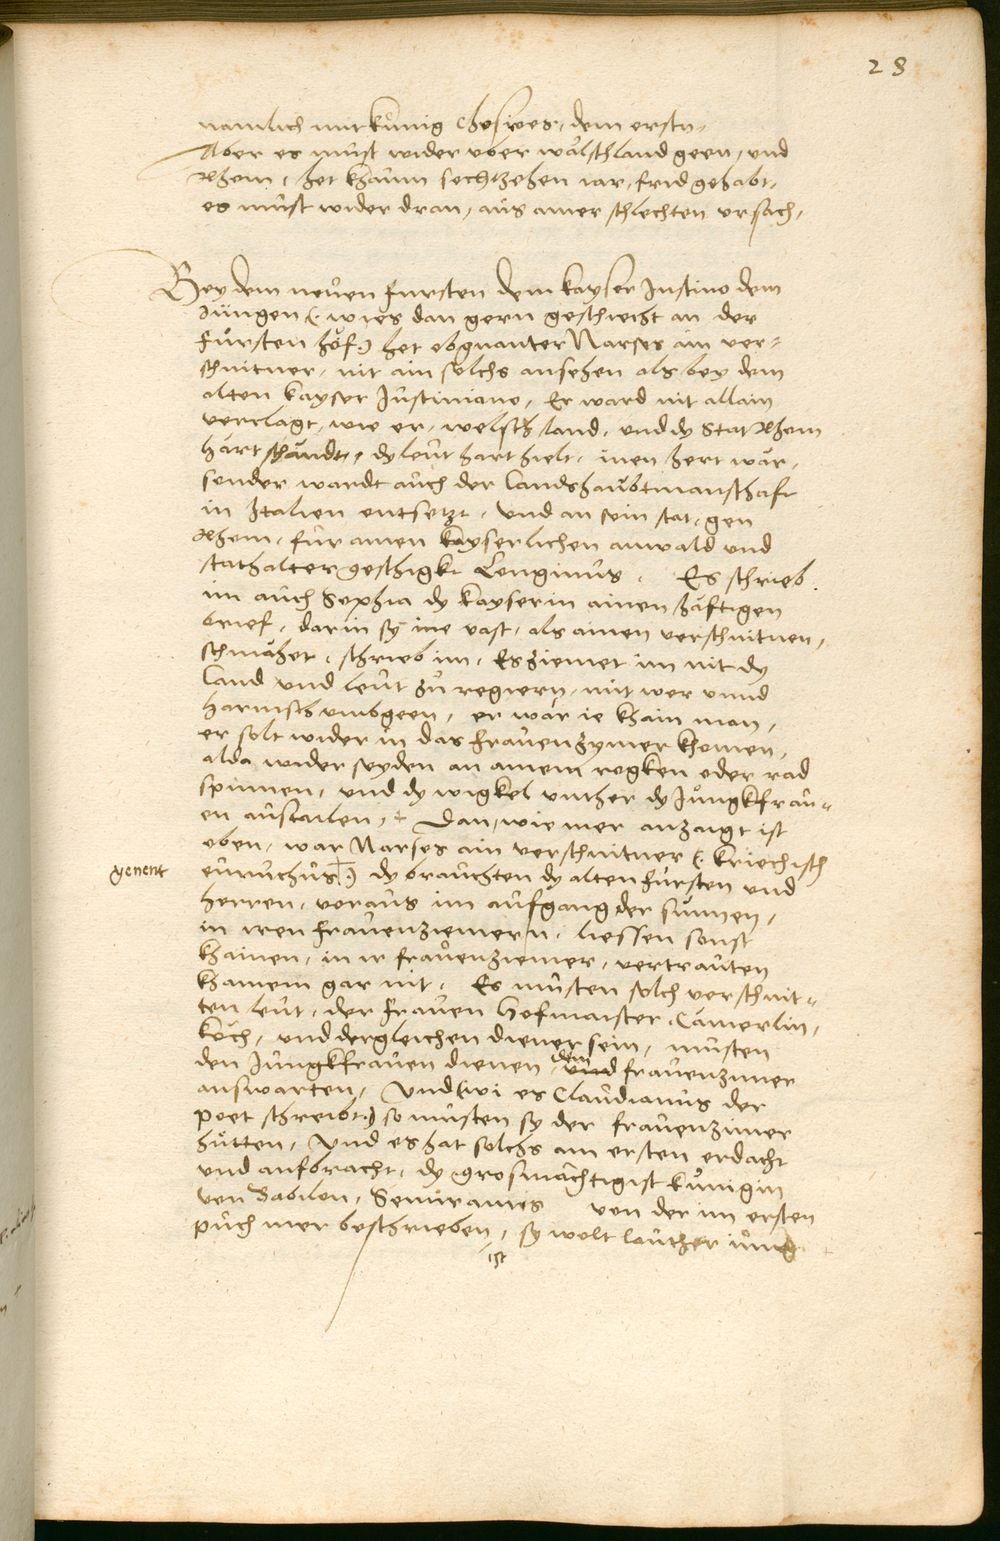 28
namlich mit kunig Chosroes, dem erstn,
Aber es must wider uber walschland geen, und
Rhom, het khaum sechtzehen iar, frid gehabt,
es must wider dran, aus ainer schlechten ursach,
Bey dem neuen fursten dem kayser Justino dem
Jungen (: wies dan gern geschiecht an der
fursten höf:) het obgnanter Narses ain ver=
schnitner, nit ain solchs ansehen als bey dem
alten kayser Justiniano, Er ward nit allain
verclagt, wie er, welsch land, und dy Stat Rhom
hart schändt, dy leut hart hielt, inen hert wär,
sonder wardt auch der landshaubtmanschaft
in Italien entsetzt, und an sein stat, gen
Rhom, fur ainen kayserlichen anwald und
stathalter geschigkt Longinus, Es schrieb
im auch Sophia dy kayserin ainen häftigen
brief, darin sy ine vast, als ainen verschnitnen,
schmähet, schrieb im, Es ziemet im nit dy
land und leut zu regiern, mit wer unnd
harnisch umbgeen, er wär ie khain man,
er solt wider in das frauenzymer khomen,
alda wider seyden an ainem rogken oder rad
spinnen, und dy wigkel unther dy Jungkfrau=
en austailen, Dan, wie mer anzaigt ist
oben, war Narses ain verschnitner (: kriechisch
genent
eunuchus:) dy brauchten dy alten fursten und
herren, voraus im aufgang der sunnen,
in iren frauenziemern, liessen sonst
khainen, in ir frauenziemer, vertrauten
khainem gar nit, Es musten solch verschnit=
ten leut, der frauen hofmaister, Camerling,
köch, und dergleichen diener sein, musten
den Jungkfrauen dienen, dem und frauenzimer
auswarten, Und (wi es Claudianus der
poet schreibt:) so musten sy der frauenzimer
hütten, Und es hat solchs am ersten erdacht
und aufbracht, dy grosmächtigist kunigin
von Babilon, Semiramis von der im ersten
puch mer beschrieben, sy wolt lauther iung
ist